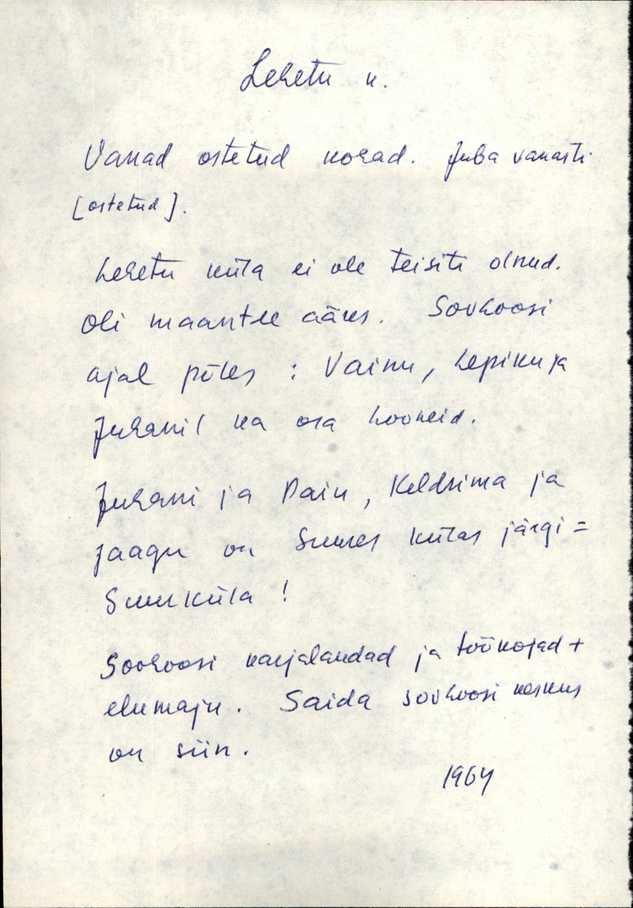 Lehetu k.
Vanad ostetud kohad. Juba vanasti
[ostetud].
Lehetu küla ei ole teisiti olnud.
Oli maantee ääres. Sovhoosi
ajal põles : Vainu, Lepiku ja
Juhanil ka osa hooneid.
Juhani ja Pain, Keldrima ja
Jaagu on Suures külas järgi =
Suurküla !
Sovhoosi karjalaudad ja töökojad +
elumaju. Saida sovhoosi keskus
on siin.
1964